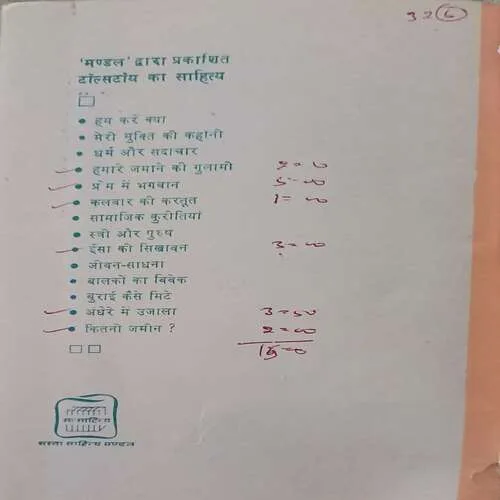 32 6
'मण्डल' द्वारा प्रकाशित
टॉल्सटॉय का साहित्य
हम करें क्या
मेरी मुक्ति की कहानी
धर्म और सदाचार
हमारे जमाने की गुलामी
प्रेम में भगवान 5=00
कलवार की करतूत 1=00
सामाजिक कुरीतियां
स्त्री और पुरुष
ईसा की सिखावन 3=00
जीवन-साधना
बालकों का विवेक
बुराई कैसे मिटे
अंधेरे में उजाला 3=50
कितनी जमीन ? 2=00
सस्ता साहित्य मण्डल